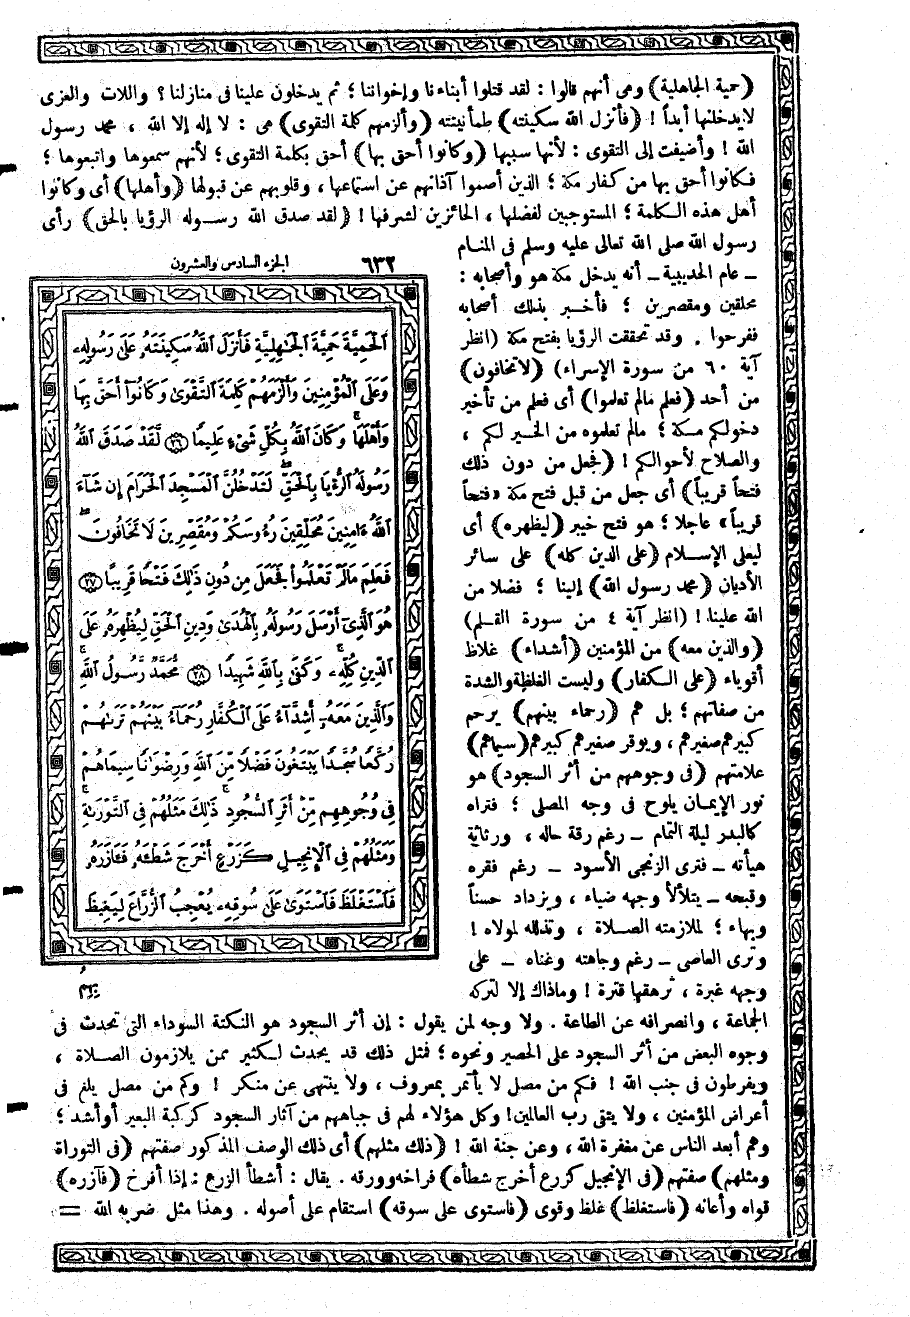 (حمية الجاهلية) وهى أنهم قالوا : لقد قتلوا أبناءنا وإخواننا ؛ ثم يدخلون علينا فى منازلنا ؟ واللات والعزى
لايدخلنها أبداً ! (فأنزل الله سكينته) طمأنينته (وألزمهم كلمة التقوى) هى : لا إله إلا الله ، محمد رسول
الله ! وأضيفت إلى التقوى : لأنها سببها (وكانوا أحق بها) أحق بكلمة التقوى ؛ لأنهم سمعوها واتبعوها ؛
فكانوا أحق بها من كفار مكة ؛ الذين أصموا آذانهم عن استماعها ، وقلوبهم عن قبولها (وأهلها) أى وكانوا
أهل هذه الكلمة ؛ المستوجبين لفضلها ، الحائزين لشرفها ! (لقد صدق الله رسوله الرؤيا بالحق) رأى
رسول الله صلى الله تعالى عليه وسلم فى المنام
ـ عام الحديبية ـ أنه يدخل مكة هو وأصحابه :
محلقين ومقصرين ؛ فأخبر بذلك أصحابه
ففرحوا . وقد تحققت الرؤيا بفتح مكة (انظر
آية ٦٠ من سورة الإسراء) (لاتخافون)
من أحد (فعلم مالم تعلموا) أى فعلم من تأخير
دخولكم مكة ؛ مالم تعلموه من الخير لكم ،
والصلاح لأحوالكم ! (فجعل من دون ذلك
فتحاً قريباً) أى جعل من قبل فتح مكة «فتحاً
قريباً» عاجلا ؛ هو فتح خيبر (ليظهره) أى
ليعلى الإسلام (على الدين كله) على سائر
الأديان (محمد رسول الله) إلينا ؛ فضلا من
الله علينا ! (انظر آية ٤ من سورة القلم)
(والذين معه) من المؤمنين (أشداء) غلاظ
أقوياء (على الكفار) وليست الغلظة والشدة
من صفاتهم ؛ بل هم (رحماء بينهم) يرحم
كبيرهم صغيرهم ، ويوقر صغيرهم كبيرهم (سيماهم)
علامتهم (فى وجوههم من أثر السجود) هو
نور الإيمان يلوح فى وجه المصلى ؛ فتراه
كالبدر ليلة التمام ـ رغم رقة حاله ، ورثاثة
هيأته ـ فترى الزنجى الأسود ـ رغم فقره
وقبحه ـ يتلألأ وجهه ضياء ، ويزداد حسناً
وبهاء ؛ لملازمته الصلاة ، وتذلله لمولاه !
وترى العاصى ـ رغم وجاهته وغناه ـ على
وجهه غبرة ، ترهقها قترة ! وماذاك إلا لتركه
الجماعة ، وانصرافه عن الطاعة . ولا وجه لمن يقول : إن أثر السجود هو النكتة السوداء التى تحدث فى
وجوه البعض من أثر السجود على الحصير ونحوه ؛ فمثل ذلك قد يحدث لكثير ممن يلازمون الصلاة ،
ويفرطون فى جنب الله ! فكم من مصل لا يأتمر بمعروف ، ولا ينتهى عن منكر ! وكم من مصل يلغ فى
أعراض المؤمنين ، ولا يتقى رب العالمين ! وكل هؤلاء لهم فى جباههم من آثار السجود كركبة البعير أو أشد ؛
وهم أبعد الناس عن مغفرة الله ، وعن جنة الله ! (ذلك مثلهم) أى ذلك الوصف المذكور صفتهم (فى التوراة
ومثلهم) صفتهم (فى الإنجيل كزرع أخرج شطأه) فراخه وورقه . يقال : أشطأ الزرع : إذا أفرخ (فآزره)
قواه وأعانه (فاستغلظ) غلظ وقوى (فاستوى على سوقه) استقام على أصوله . وهذا مثل ضربه الله =
٦٣٢ الجزء السادس والعشرون
ٱلْحَمِيَّةَ حَمِيَّةَ ٱلْجَٰهِلِيَّةِ فَأَنزَلَ ٱللَّهُ سَكِينَتَهُۥ عَلَىٰ رَسُولِهِۦ
وَعَلَى ٱلْمُؤْمِنِينَ وَأَلْزَمَهُمْ كَلِمَةَ ٱلتَّقْوَىٰ وَكَانُوٓا۟ أَحَقَّ بِهَا
وَأَهْلَهَا ۚ وَكَانَ ٱللَّهُ بِكُلِّ شَىْءٍ عَلِيمًا ٢٦ لَّقَدْ صَدَقَ ٱللَّهُ
رَسُولَهُ ٱلرُّءْيَا بِٱلْحَقِّ ۖ لَتَدْخُلُنَّ ٱلْمَسْجِدَ ٱلْحَرَامَ إِن شَآءَ
ٱللَّهُ ءَامِنِينَ مُحَلِّقِينَ رُءُوسَكُمْ وَمُقَصِّرِينَ لَا تَخَافُونَ ۖ
فَعَلِمَ مَا لَمْ تَعْلَمُوا۟ فَجَعَلَ مِن دُونِ ذَٰلِكَ فَتْحًا قَرِيبًا ٢٧
هُوَ ٱلَّذِىٓ أَرْسَلَ رَسُولَهُۥ بِٱلْهُدَىٰ وَدِينِ ٱلْحَقِّ لِيُظْهِرَهُۥ عَلَى
ٱلدِّينِ كُلِّهِۦ ۚ وَكَفَىٰ بِٱللَّهِ شَهِيدًا ٢٨ مُّحَمَّدٌ رَّسُولُ ٱللَّهِ ۚ
وَٱلَّذِينَ مَعَهُۥٓ أَشِدَّآءُ عَلَى ٱلْكُفَّارِ رُحَمَآءُ بَيْنَهُمْ تَرَىٰهُمْ
رُكَّعًا سُجَّدًا يَبْتَغُونَ فَضْلًا مِّنَ ٱللَّهِ وَرِضْوَٰنًا سِيمَاهُمْ
فِى وُجُوهِهِم مِّنْ أَثَرِ ٱلسُّجُودِ ۚ ذَٰلِكَ مَثَلُهُمْ فِى ٱلتَّوْرَىٰةِ ۚ
وَمَثَلُهُمْ فِى ٱلْإِنجِيلِ كَزَرْعٍ أَخْرَجَ شَطْـَٔهُۥ فَـَٔازَرَهُۥ
فَٱسْتَغْلَظَ فَٱسْتَوَىٰ عَلَىٰ سُوقِهِۦ يُعْجِبُ ٱلزُّرَّاعَ لِيَغِيظَ
بِهِمُ